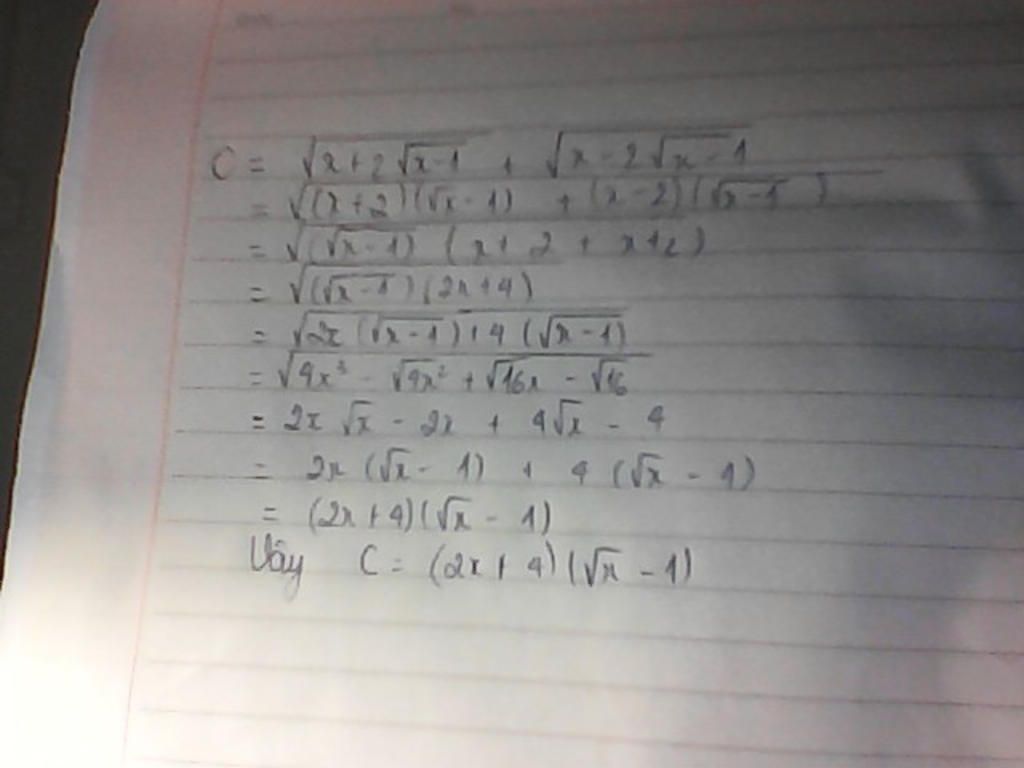 C = √(x+2√(x-1)) + √(x-2√(x-1))
= √((x+2)(√x-1) + (x-2)(√x-1))
= √((√x-1)(x+2+x+2))
= √((√x-1)(2x+4))
= √(2x(√x-1)+4(√x-1))
= √4x³ - √4x² + √16x - √16
= 2x√x - 2x + 4√x - 4
= 2x(√x - 1) + 4(√x - 1)
= (2x+4)(√x - 1)
Vây C = (2x+4)(√x - 1)